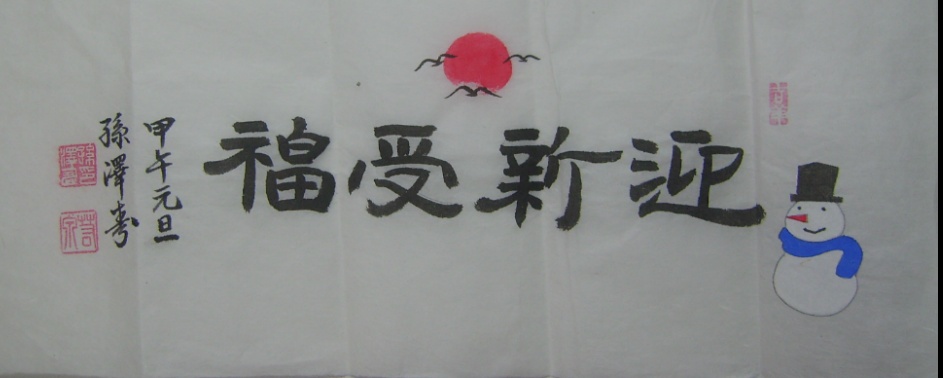 迎新受福
甲午元旦
孫澤